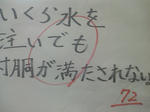 いくら水を
注いでも
付胴が満たされない
72